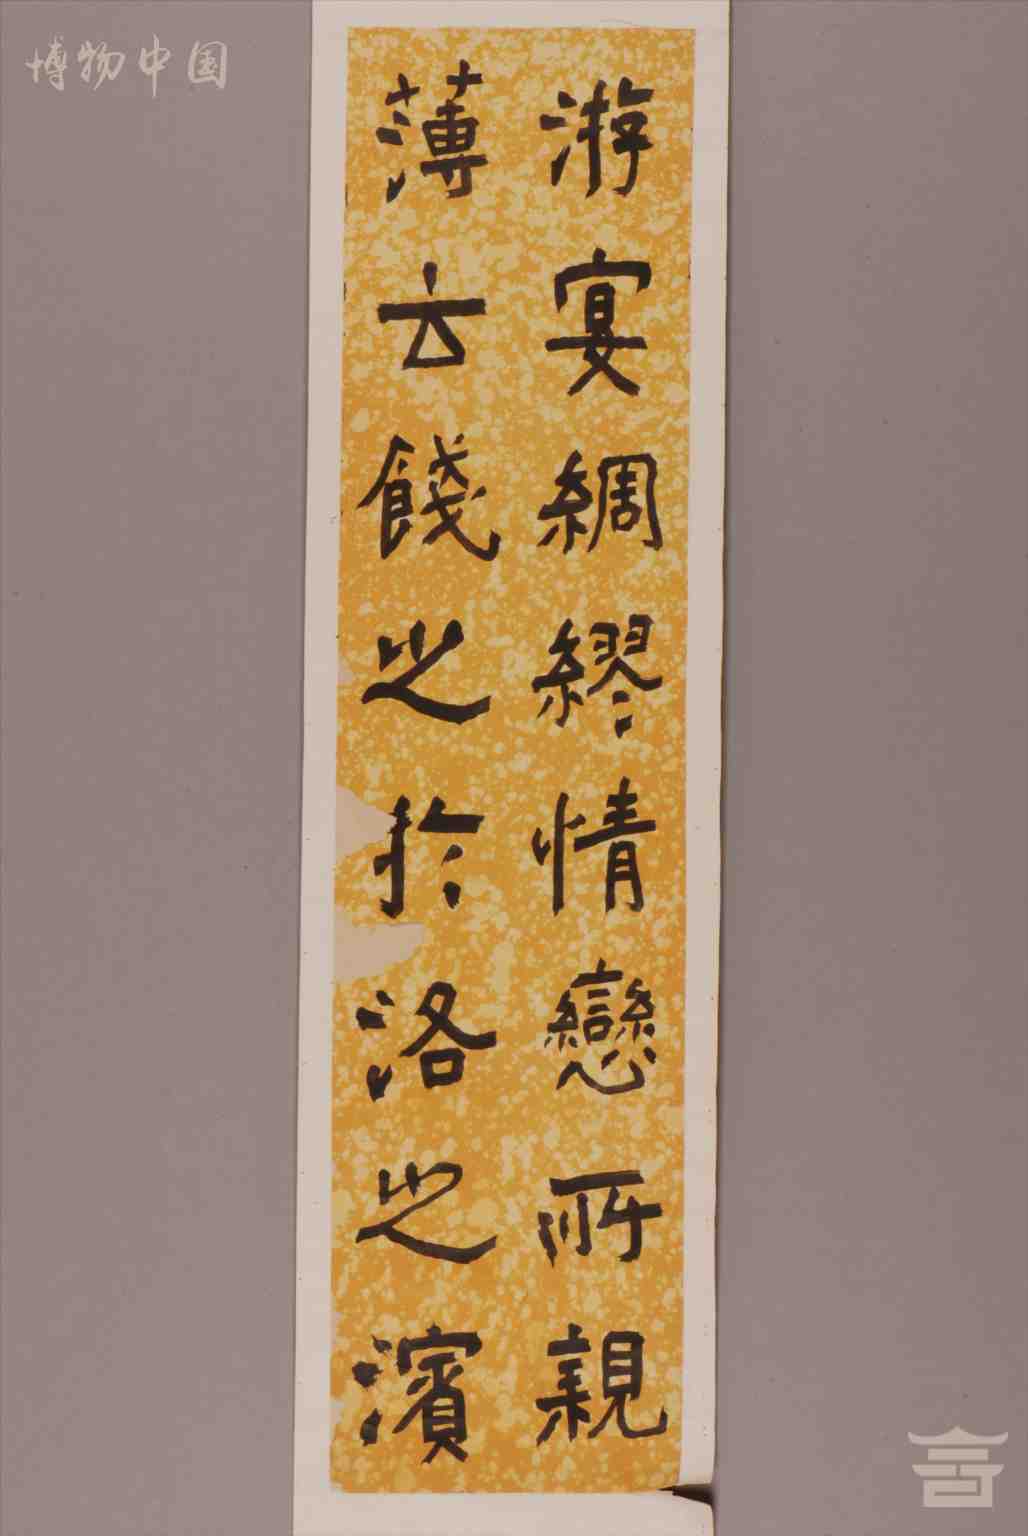 游宴綢繆情戀所親
薄云餞之於洛之濱
博物中国